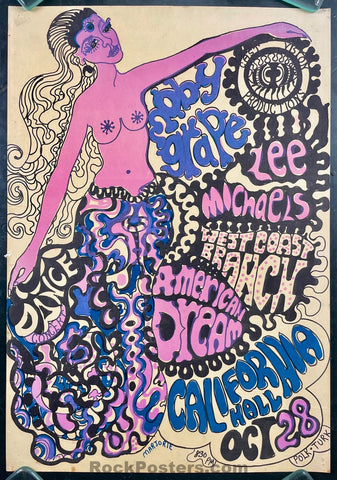 Moby
grape
Lee
Michaels
WEST COAST
BRANCH
American
Dream
DANCE
CALIFORNIA
Hall
OCT 28
MARJORIE
8:30 PM
POLK-TURK
RockPosters.com